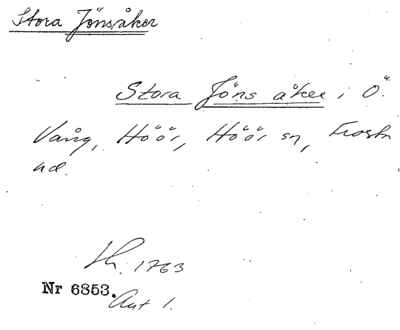 Stora Jönsåker
Stora Jöns åker i Ö.
Vång, Höör, Höör sn, Frosta
hd.
1763
Nr 6853.
Akt 1.